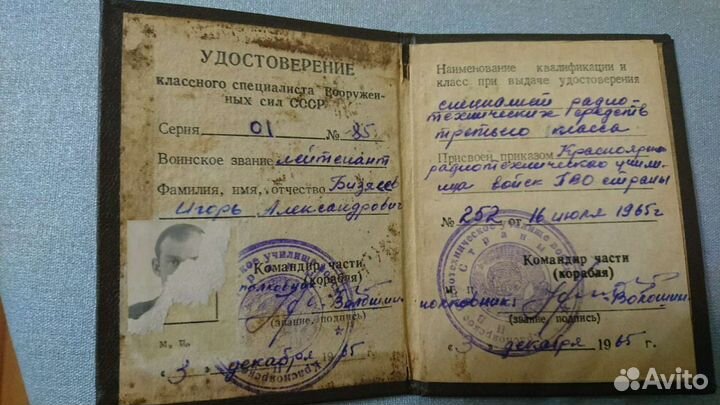 УДОСТОВЕРЕНИЕ
классного специалиста Вооружен-
ных сил СССР
Серия 01 № 85
Воинское звание лейтенант
Фамилия, имя, отчество Бизяев
Игорь Александрович
Командир части
(корабля)
полковник Волошин
(звание, подпись)
М. П.
"3" декабря 1965 г.
Наименование квалификации и
класс при выдаче удостоверения
специалист радио-
технических средств
третьего класса
Присвоен приказом Красноярск
радиотехническое учили-
ща войск ПВО страны
№ 252 от 16 июля 1965 г
Командир части
(корабля)
м. п.
полковник Волошин
(звание, подпись)
"3" декабря 1965 г.
Avito